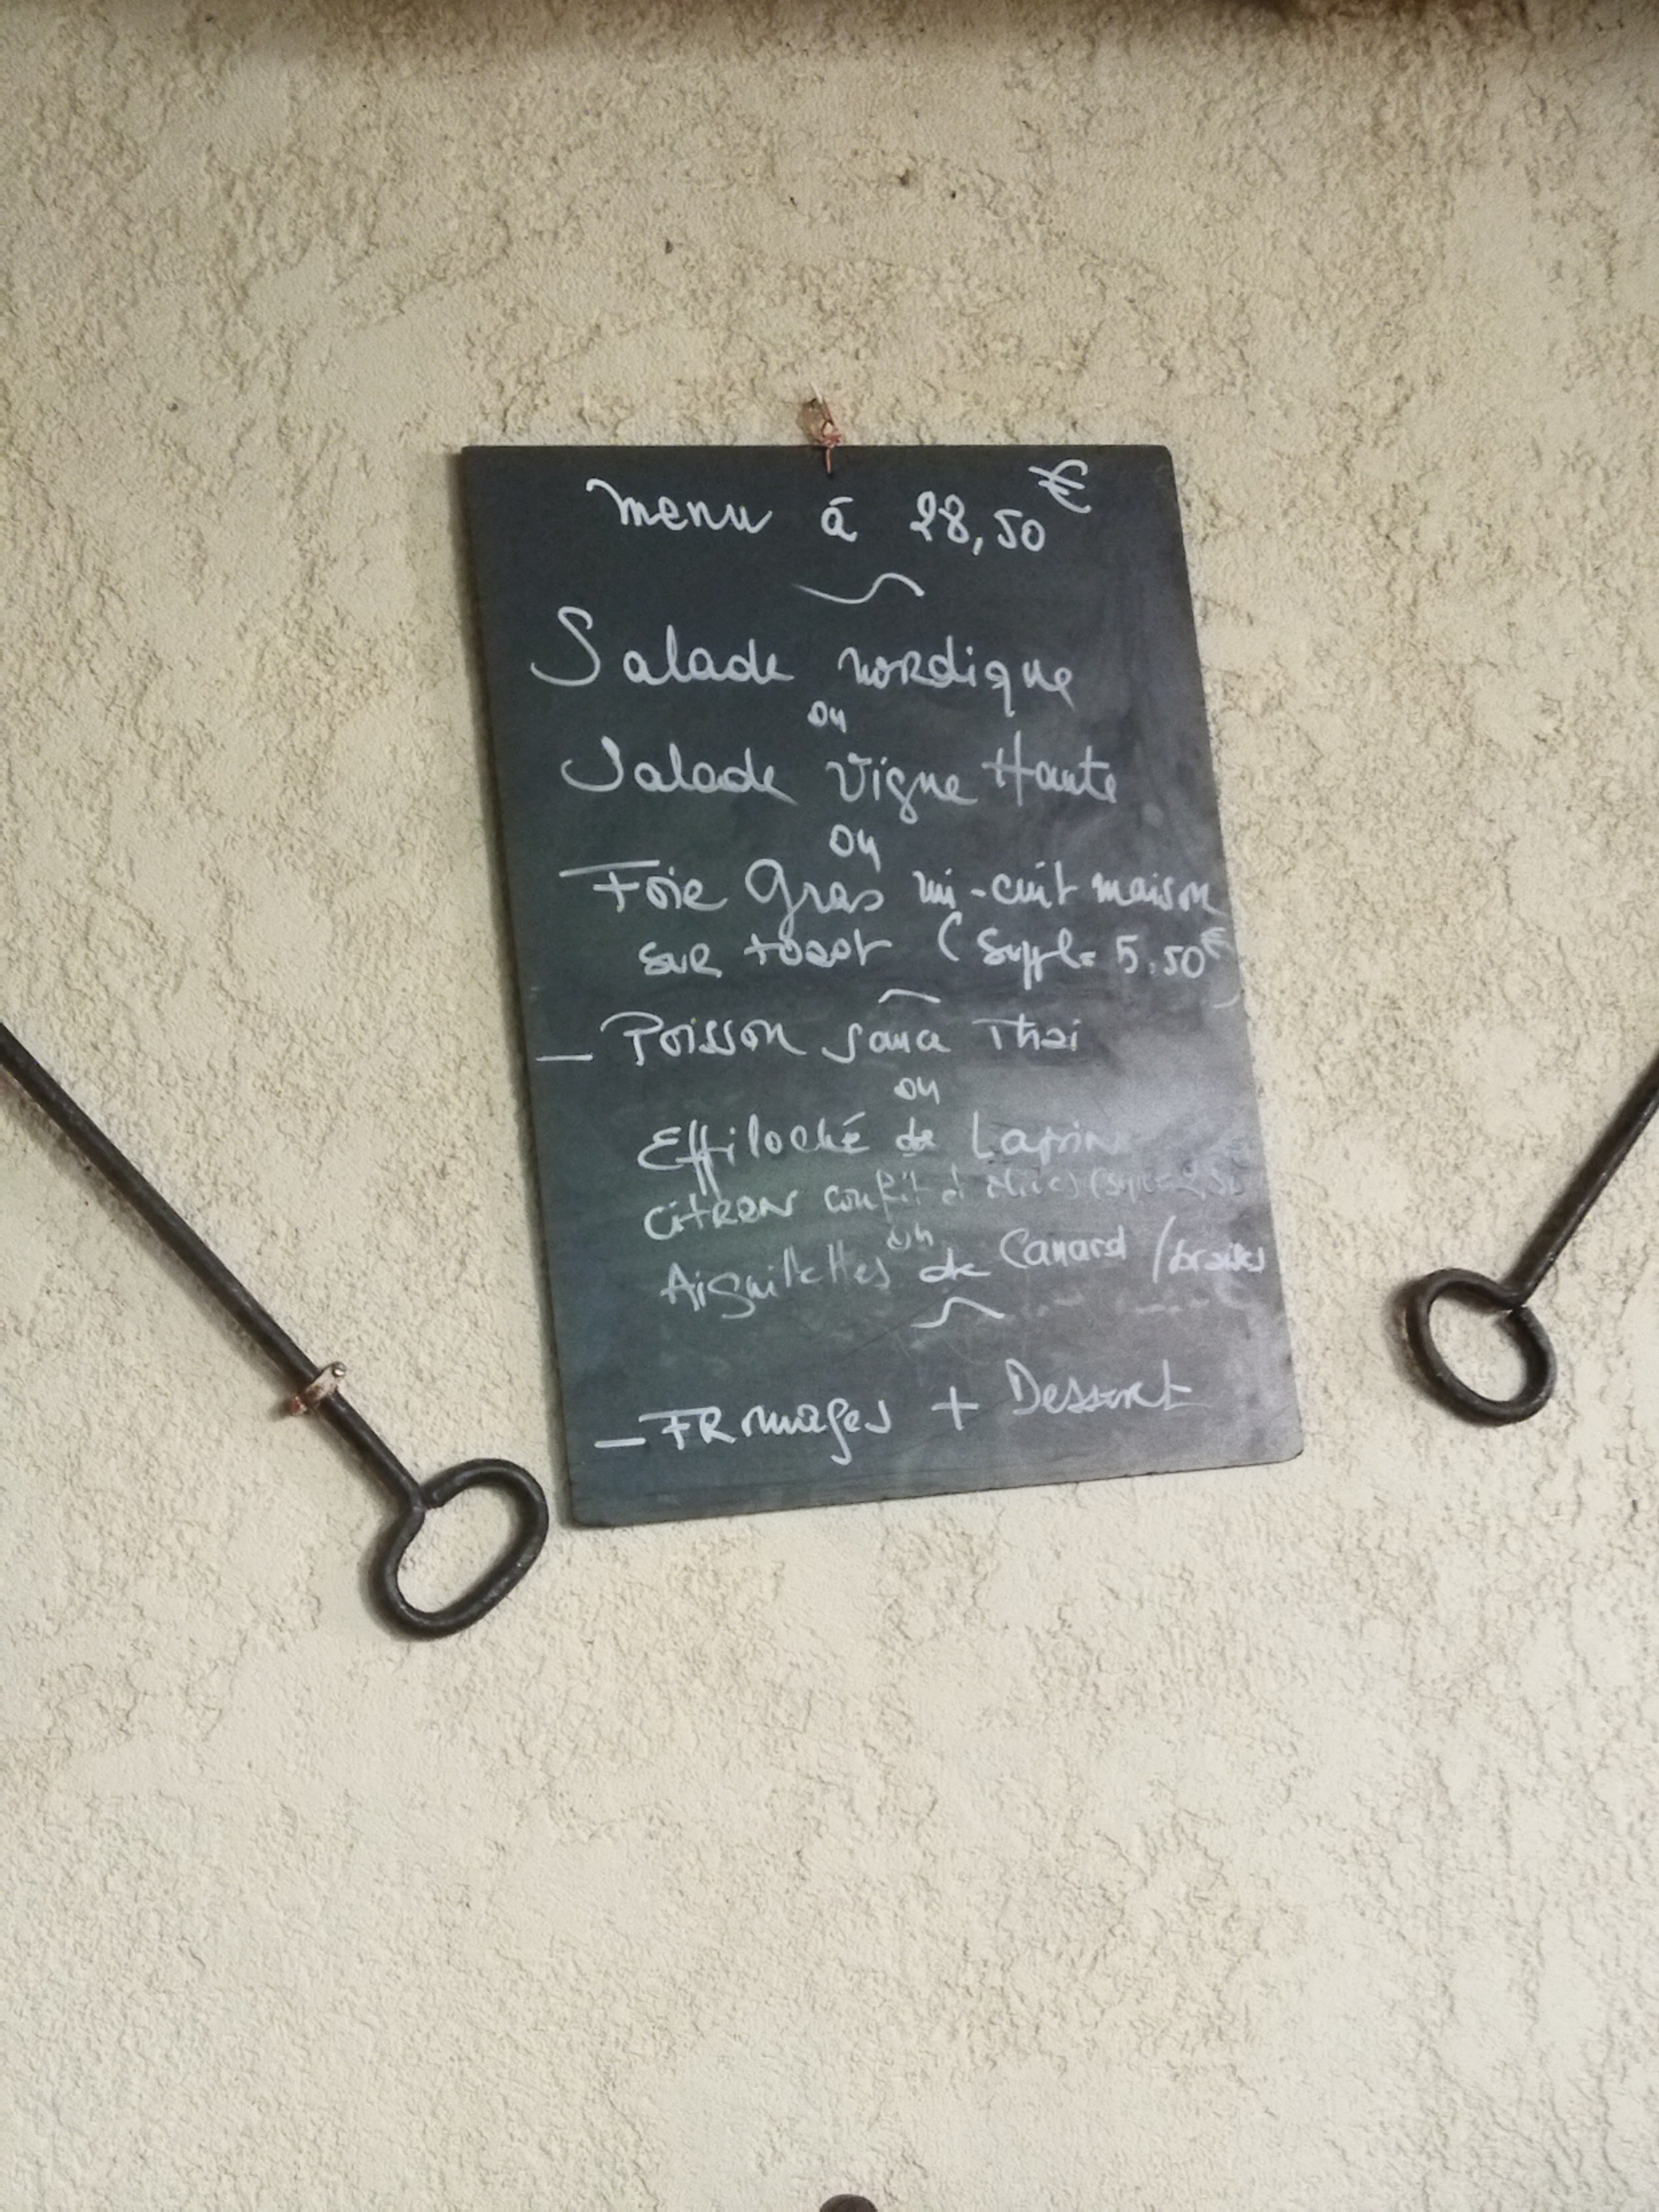 menu á 28,50€
Salade nordique
ou
Salade Vigne Haute
ou
Foie Gras mi-cuit maison
sur toast (Suppl= 5.50€)
— Poisson sauce Thai
ou
Effiloché de Lapin
citron confit olives (suppl=
ou
Aiguillettes de Canard /
— Fromages + Dessert